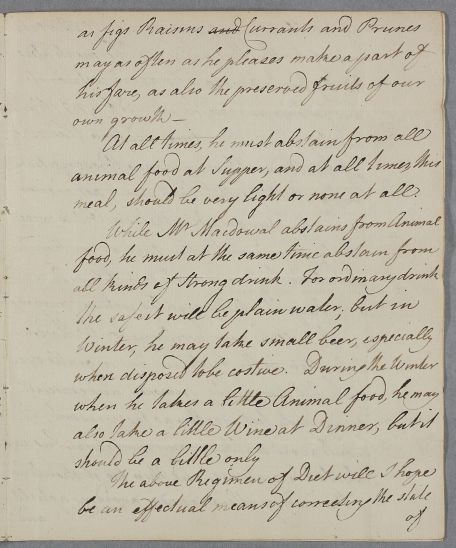 as figs Raisins and Currants and Prunes
may as often as he pleases make a part of
his fare, as also the preserved fruits of our
own growth —
At all times, he must abstain from all
animal food at Supper, and at all times, this
meal, should be very light or none at all.
While Mr Macdowal abstains from Animal
food, he must at the same time abstain from
all kinds of strong drink. For ordinary drink
the safest will be plain water, but in
Winter, he may take small beer, especially
when disposed to be costive. During the Winter
when he takes a little Animal food, he may
also take a little Wine at Dinner, but it
should be a little only
The above Regimen of Diet will I hope
be an effectual means of correcting the state
of